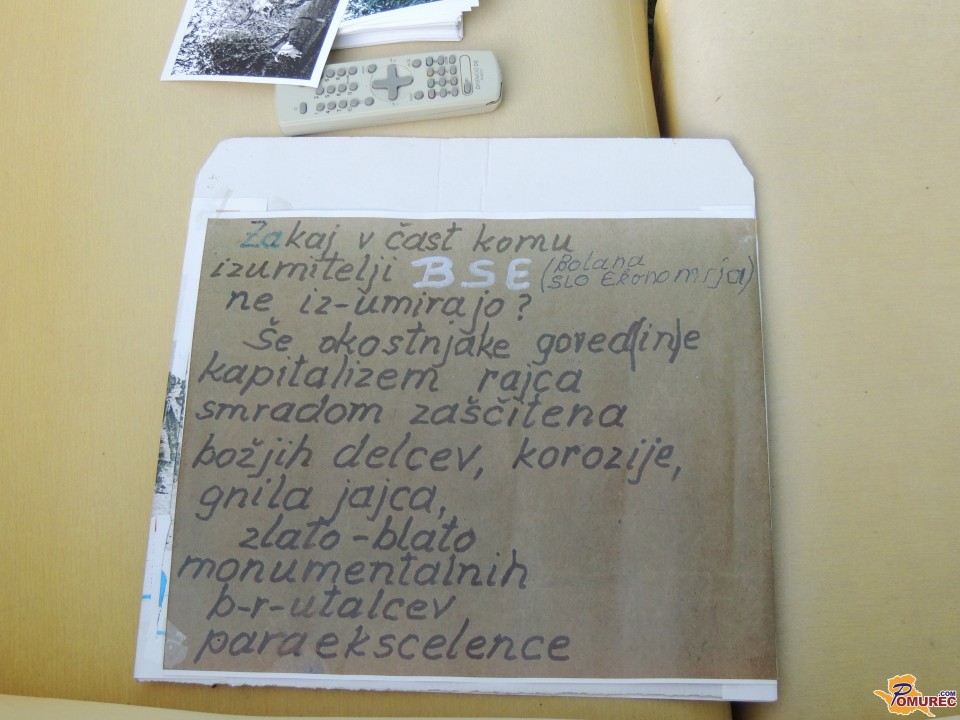 Zakaj v čast komu
izumitelji BSE (Bolana
SLO Ekonomija)
ne iz-umirajo?
Še okostnjake goved(in)e
kapitalizem rajca
smradom zaščitena
božjih delcev, korozije,
gnila jajca,
zlato-blato
monumentalnih
b-r-utalcev
para ekscelence
POMUREC.COM